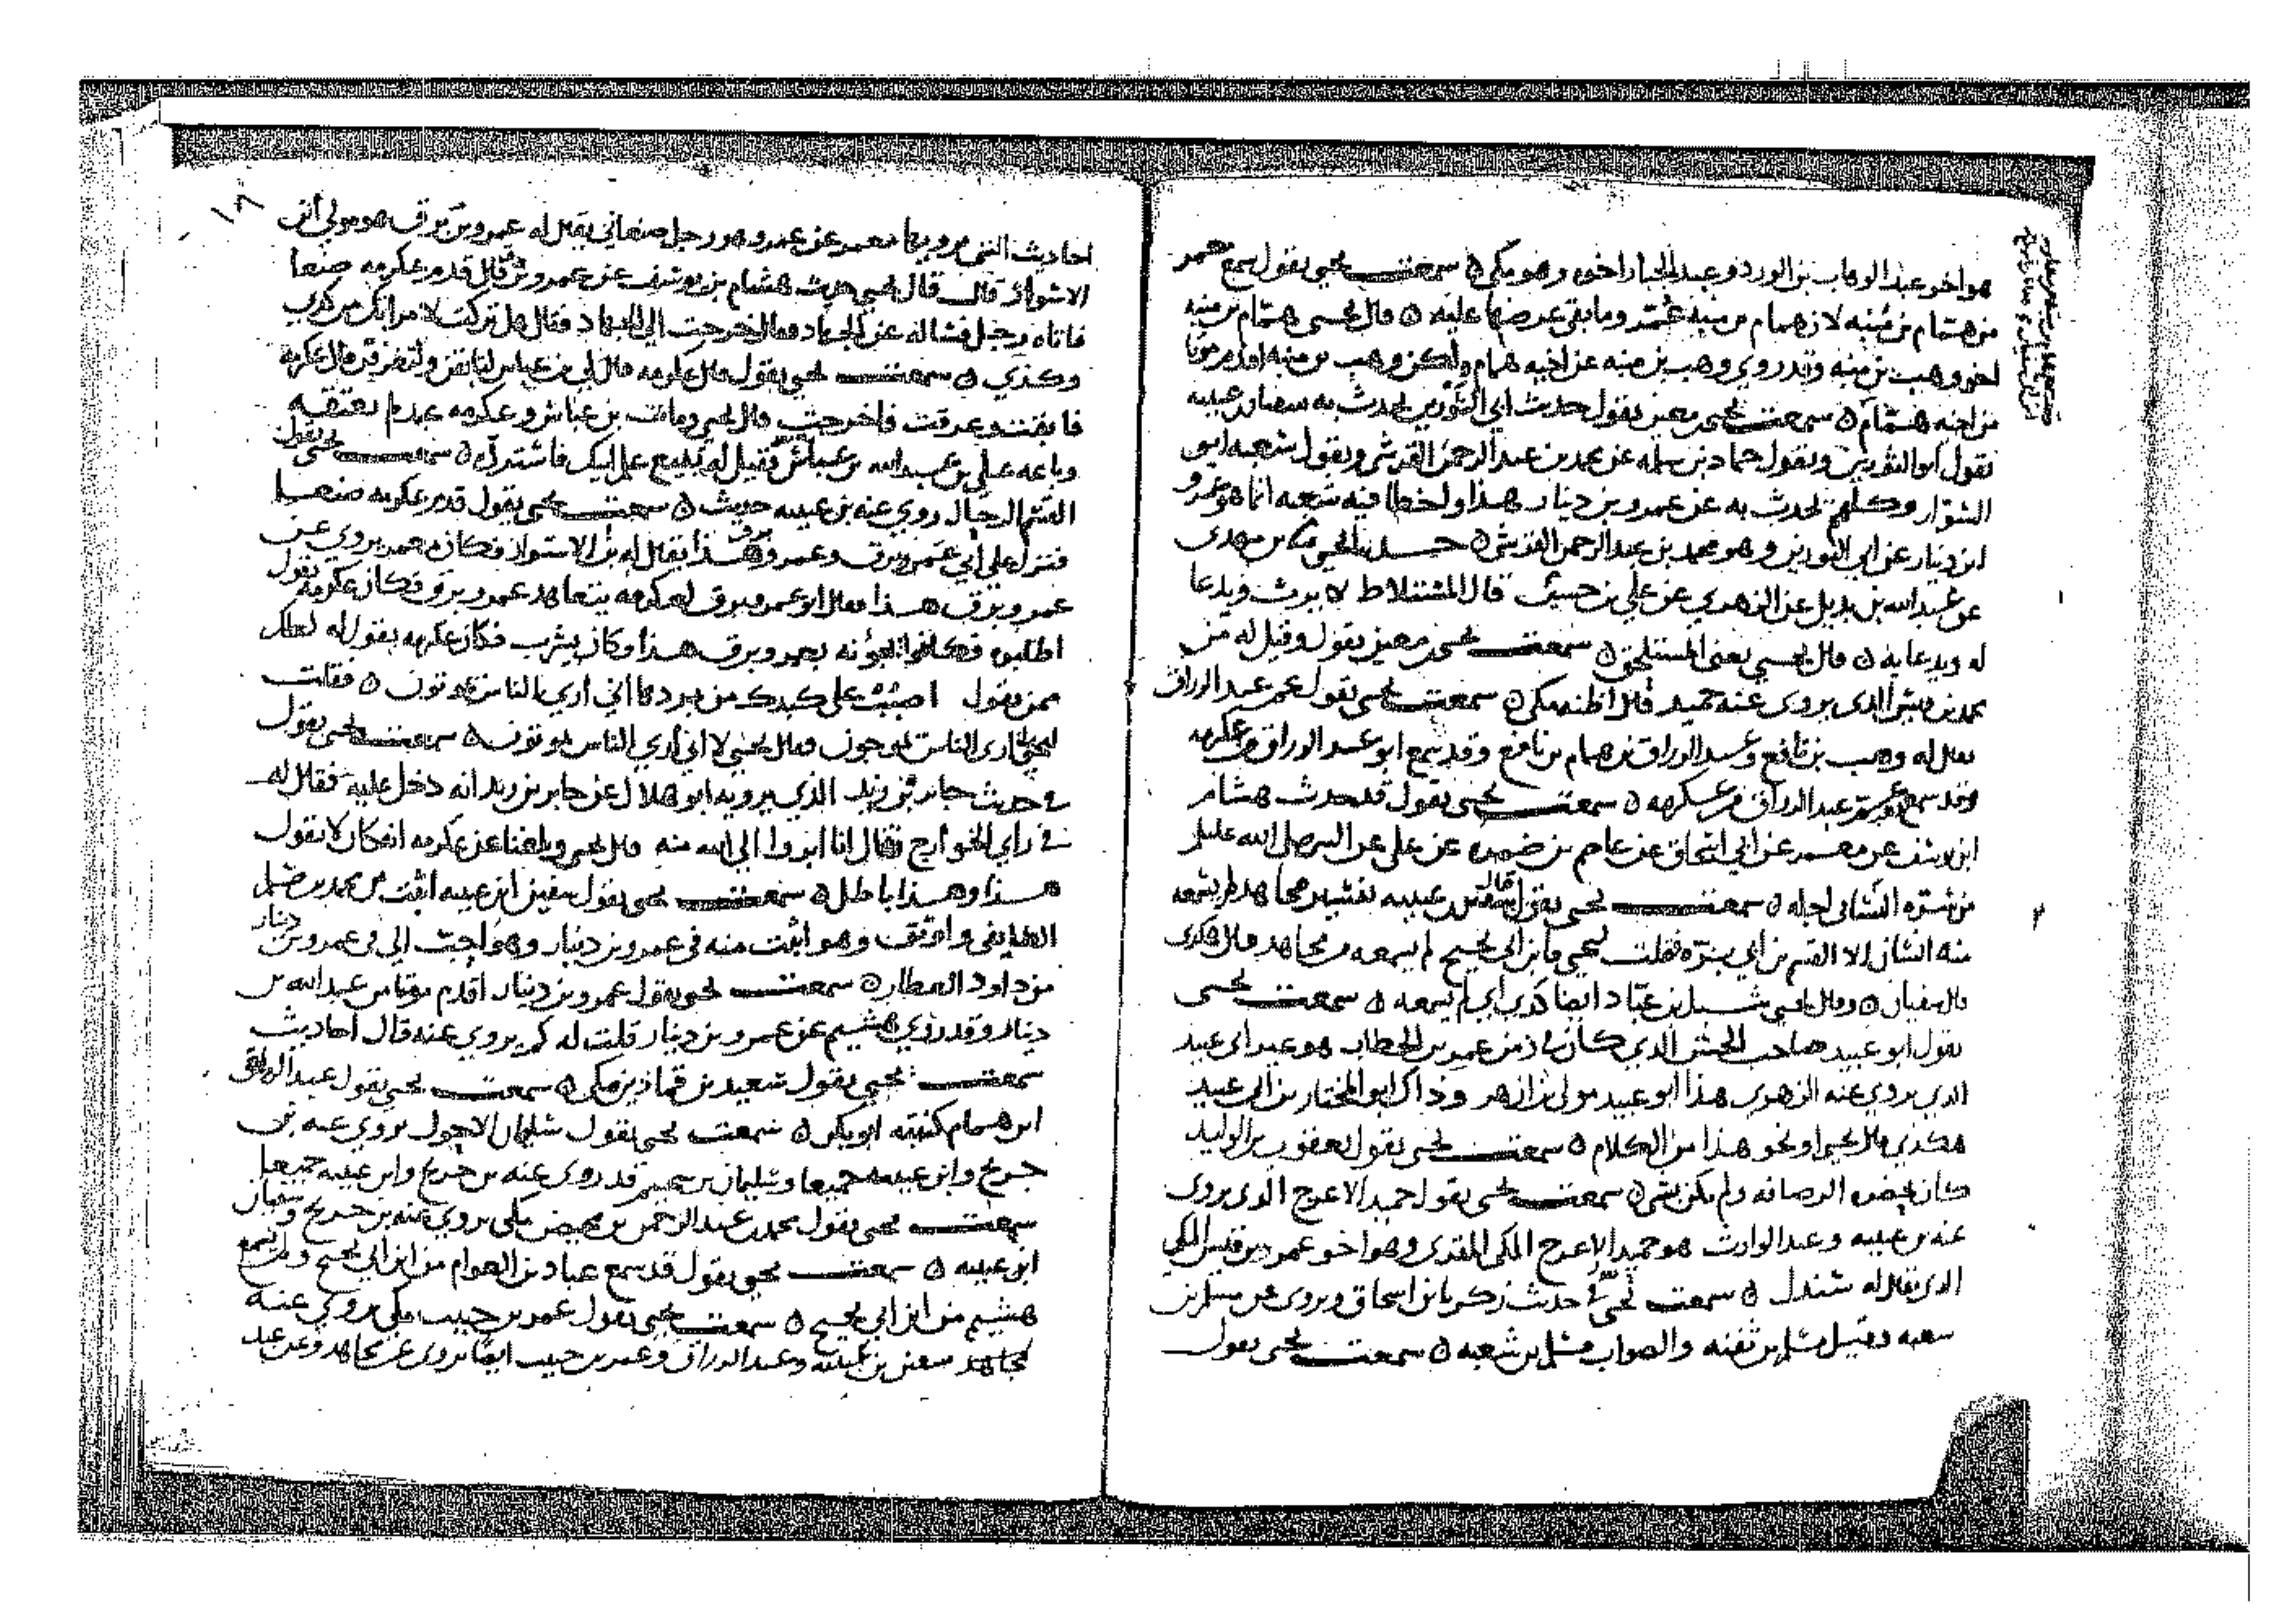 هو اخو عبد الوهاب بن الورد وعبد الجبار اخوه وهو مكي ه سمعت يحيى يقول سمع معمر
من همام بن منبه لان همام بن منبه وما بقي عرضها عليه ه قال يحيى همام بن منبه
اخو وهب بن منبه وقد روى وهب بن منبه عن اخيه همام ولكن وهب بن منبه اقدم موتا
من اخيه همام ه سمعت يحيى بن معين يقول حديث ابي الثورين يحدث به سفيان بن عيينه
يقول ابو الثورين ويقول حماد بن سلمه عن محمد بن عبد الرحمن القرشي ويقول شعبه ابو
السوار وكلهم يحدث به عن عمرو بن دينار هذا واخطا فيه شعبه انما هو عمرو
ابن دينار عن ابي الثورين وهو محمد بن عبد الرحمن القرشي ه حدثنا يحيى بن مهدي
عن عبد الله بن بديل عن الزهري عن علي بن حسين قال المستلاط لا يرث ويدعا
له ويدعا به ه قال يحيى يعني المستلحق ه سمعت يحيى بن معين يقول وقيل له من
محمد بن الذي يروي عنه حميد قال اظنه مكي ه سمعت يحيى يقول عم عبد الرزاق
يقال له وهب بن نافع وعبد الرزاق بن همام بن نافع وقد سمع ابو عبد الرزاق من عكرمه
وقد سمع عم عبد الرزاق من عكرمه ه سمعت يحيى يقول قد حدث هشام
ابن يوسف عن معمر عن ابي اسحاق عن عاصم بن ضمره عن علي عن النبي صلى الله عليه
من سره النسا في اجله ه سمعت يحيى يقول قال سفين بن عيينه تفسير مجاهد لم يسمعه
منه انسان الا القسم بن ابي بزه فقلت ليحيى فابن ابي نجيح لم يسمعه من مجاهد قال كذى
قال سفيان ه وقال يحيى شبل بن عباد ايضا كذى اي لم يسمعه ه سمعت يحيى
يقول ابو عبيد صاحب الجسر الذي كان في زمن عمر بن الخطاب هو غير ابي عبيد
الذي يروي عنه الزهري هذا ابو عبيد مولى بن ازهر وذاك ابو المختار بن ابي عبيد
هكذى قال يحيى او نحو هذا من الكلام ه سمعت يحيى يقول يعقوب بن الوليد
كان بحضره الرصافه ولم يكن بشي ه سمعت يحيى يقول حميد الاعرج الذي يروي
عنه بن عيينه وعبد الوارث هو حميد الاعرج المكي المقري وهو اخو عمر بن قيس المكي
الذي يقال له سندل ه سمعت يحيى في حديث زكريا بن اسحاق ويروي عن مسلم بن
شعبه وقيل مسلم بن ثفنه والصواب مسلم بن شعبه ه سمعت يحيى يقول
١٦
احاديث التي يرويها معمر عن عمرو هو رجل صنعاني يقال له عمرو بن برق هو مولى
الاسوار قال قال يحيى حديث هشام بن يوسف عن عمرو بن برق قال قدم عكرمه صنعا
فاتاه رجل فساله عن الجهاد فقال خرجت الى الجهاد فقال هل تركت لامراتك من كذى
وكذى ه سمعت يحيى يقول قال عكرمه قال لي بن عباس
فاخرجت قال يحيى ومات بن عباس وعكرمه عبد لم يعتقه
وباعه علي بن عبد الله بن عباس فقيل له تبيع علم ابيك فاسترده ه سمعت يحيى يقول
القسم الرحال روى عنه بن عيينه حديث ه سمعت يحيى يقول قدم عكرمه صنعا
فنزل على ابي عمرو برق وعمرو برق هذا يقال له بن الاسوار فكان معمر يروي عن
عمرو برق هذا فقال ابو عمرو برق لعكرمه يتعاهد عمرو برق فكان عكرمه يقول
اطلبوه فكانوا يجونه بعمرو برق هذا وكان يشرب فكان عكرمه يقول له لعلك
ممن يقول اصبب على كبدك من بردها اني ارى الناس يموتون ه فقلت
ليحيى ارى الناس يموجون فقال يحيى لا اني ارى الناس يموتون ه سمعت يحيى يقول
في حديث جابر بن زيد الذي يرويه ابو هلال عن جابر بن زيد انه دخل عليه فقال له
في راي الخوارج فقال انا ابروا الى الله منه قال يحيى وبلغنا عن عكرمه انه كان لا يقول
هذا وهذا باطل ه سمعت يحيى يقول سفين ابن عيينه اثبت من محمد بن مسلم
الطايفي واوثق وهو اثبت منه في عمرو بن دينار وهو احب الي في عمرو بن دينار
من داود العطار ه سمعت يحيى يقول عمرو بن دينار اقدم موتا من عبد الله بن
دينار وقد روى هشيم عن عمرو بن دينار قلت له كم يروي عنه قال احاديث
سمعت يحيى يقول سعيد بن قماذين مكي ه سمعت يحيى يقول عبد الرزاق
ابن همام كنيته ابو بكر ه سمعت يحيى يقول سليمان الاحول يروي عنه بن
جريج وابن عيينه جميعا وسليمان بن سحيم قد روى عنه بن جريج وابن عيينه جميعا
سمعت يحيى يقول محمد بن عبد الرحمن بن محيصن مكي يروي عنه بن جريج وسفيان
ابن عيينه ه سمعت يحيى يقول قد سمع عباد بن العوام من ابن ابي نجيح ولم يسمع
هشيم من ابن ابي نجيح ه سمعت يحيى يقول عمر بن حبيب مكي يروي عنه
سفين بن عيينه وعبد الرزاق وعمر بن حبيب ايضا يروي عن مجاهد وعن عبد